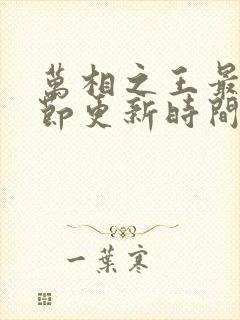 萬相之王最
節更新時間
一葉寒